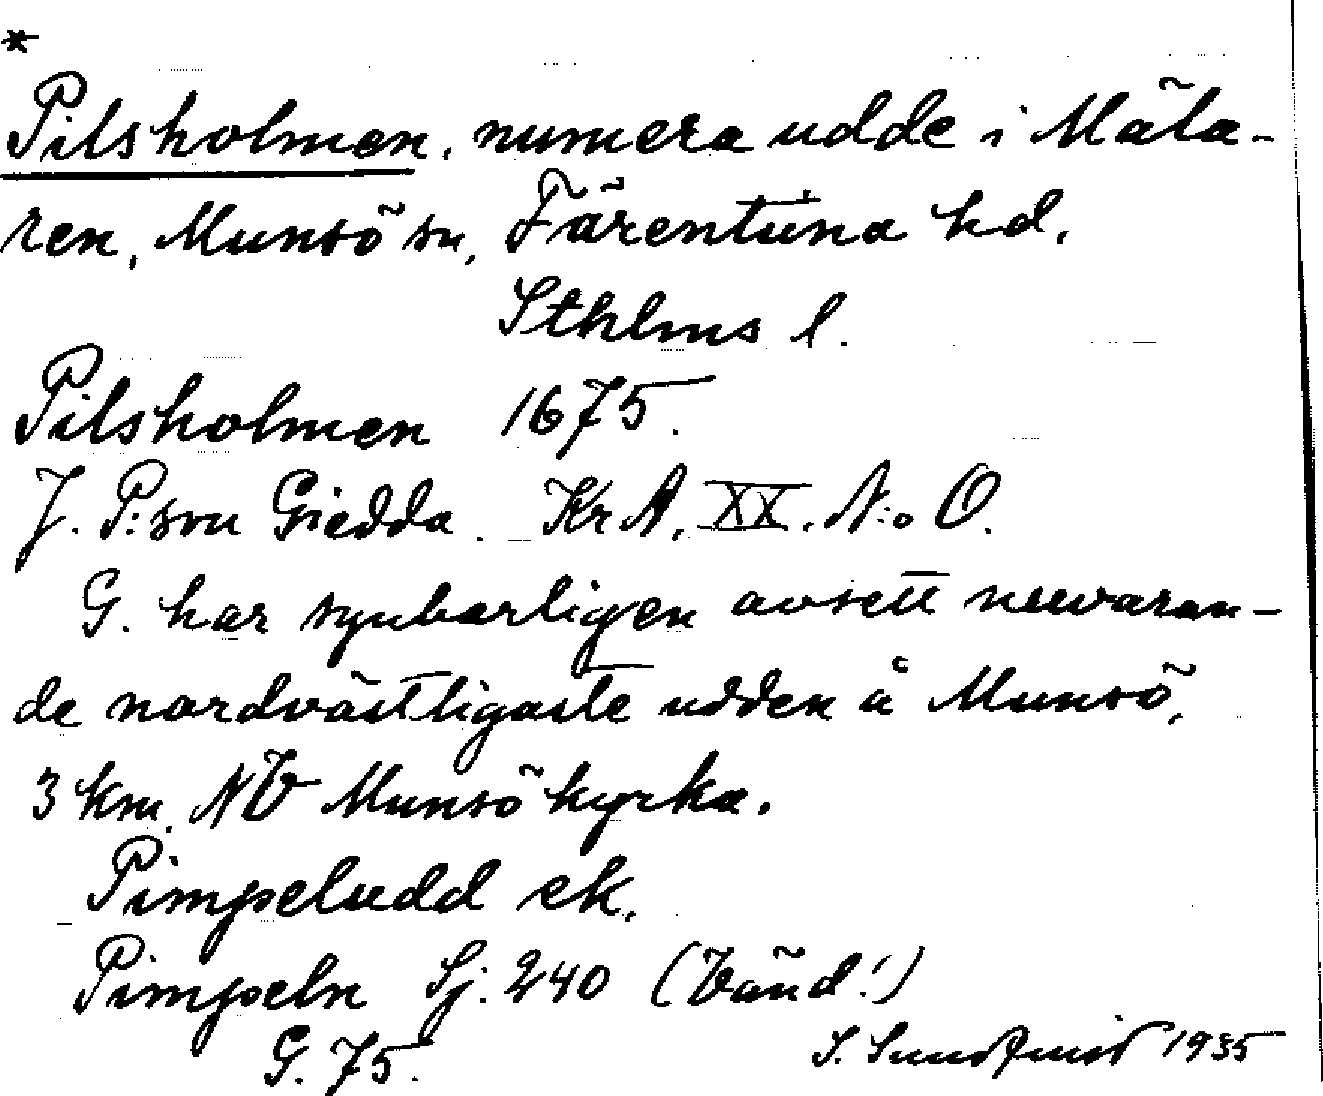 *
Pilsholmen, numera udde i Mäla-
ren, Munsö sn, Färentuna hd,
Sthlms l.
Pilsholmen 1675.
J. P:son Giedda. KrA. XX. N:o O.
G. har synbarligen avsett nuvaran-
de nordvästligaste udden å Munsö,
3 km. NV Munsö kyrka.
Pimpeludd ek.
Pimpeln Sj. 240 (Vänd!)
G. 75. S. Sundquist 1935